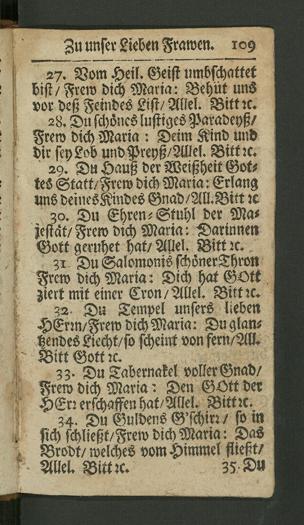 Zu unser Lieben Frawen. 109
27. Vom Heil. Geist umbschattet
bist/ Frew dich Maria: Behüt uns
vor deß Feindes List/ Allel. Bitt ꝛc.
28. Du schönes lustiges Paradeyß/
Frew dich Maria: Deim Kind und
dir sey Lob und Preyß/ Allel. Bitt ꝛc.
29. Du Hauß der Weißheit Got-
tes Statt/ Frew dich Maria: Erlang
uns deines Kindes Gnad/ All. Bitt ꝛc
30. Du Ehren-Stuhl der Ma-
jestät/ Frew dich Maria: Darinnen
Gott geruhet hat/ Allel. Bitt ꝛc.
31. Du Salomonis schöner Thron
Frew dich Maria: Dich hat GOtt
ziert mit einer Cron/ Allel. Bitt ꝛc.
32. Du Tempel unsers lieben
HErrn/ Frew dich Maria: Du glan-
tzendes Liecht/ so scheint von fern/ All.
Bitt Gott ꝛc.
33. Du Tabernakel voller Gnad/
Frew dich Maria: Den GOtt der
HErr erschaffen hat/ Allel. Bitt ꝛc.
34. Du Guldens G'schirr/ so in
sich schließt/ Frew dich Maria: Das
Brodt/ welches vom Himmel fließt/
Allel. Bitt ꝛc. 35. Du